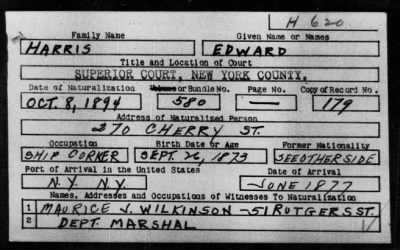 H 620
Family Name Given Name or Names
HARRIS EDWARD
Title and Location of Court
SUPERIOR COURT, NEW YORK COUNTY.
Date of Naturalization Volume or Bundle No. Page No. Copy of Record No.
OCT. 8, 1894 580 — 179
Address of Naturalized Person
270 CHERRY ST.
Occupation Birth Date or Age Former Nationality
SHIP CORKER SEPT. 26, 1873 SEE OTHER SIDE
Port of Arrival in the United States Date of Arrival
N.Y. N.Y. JUNE 1877
Names, Addresses and Occupations of Witnesses To Naturalization
1 MAURICE J. WILKINSON - 51 RUTGERS ST.
2 DEPT. MARSHAL